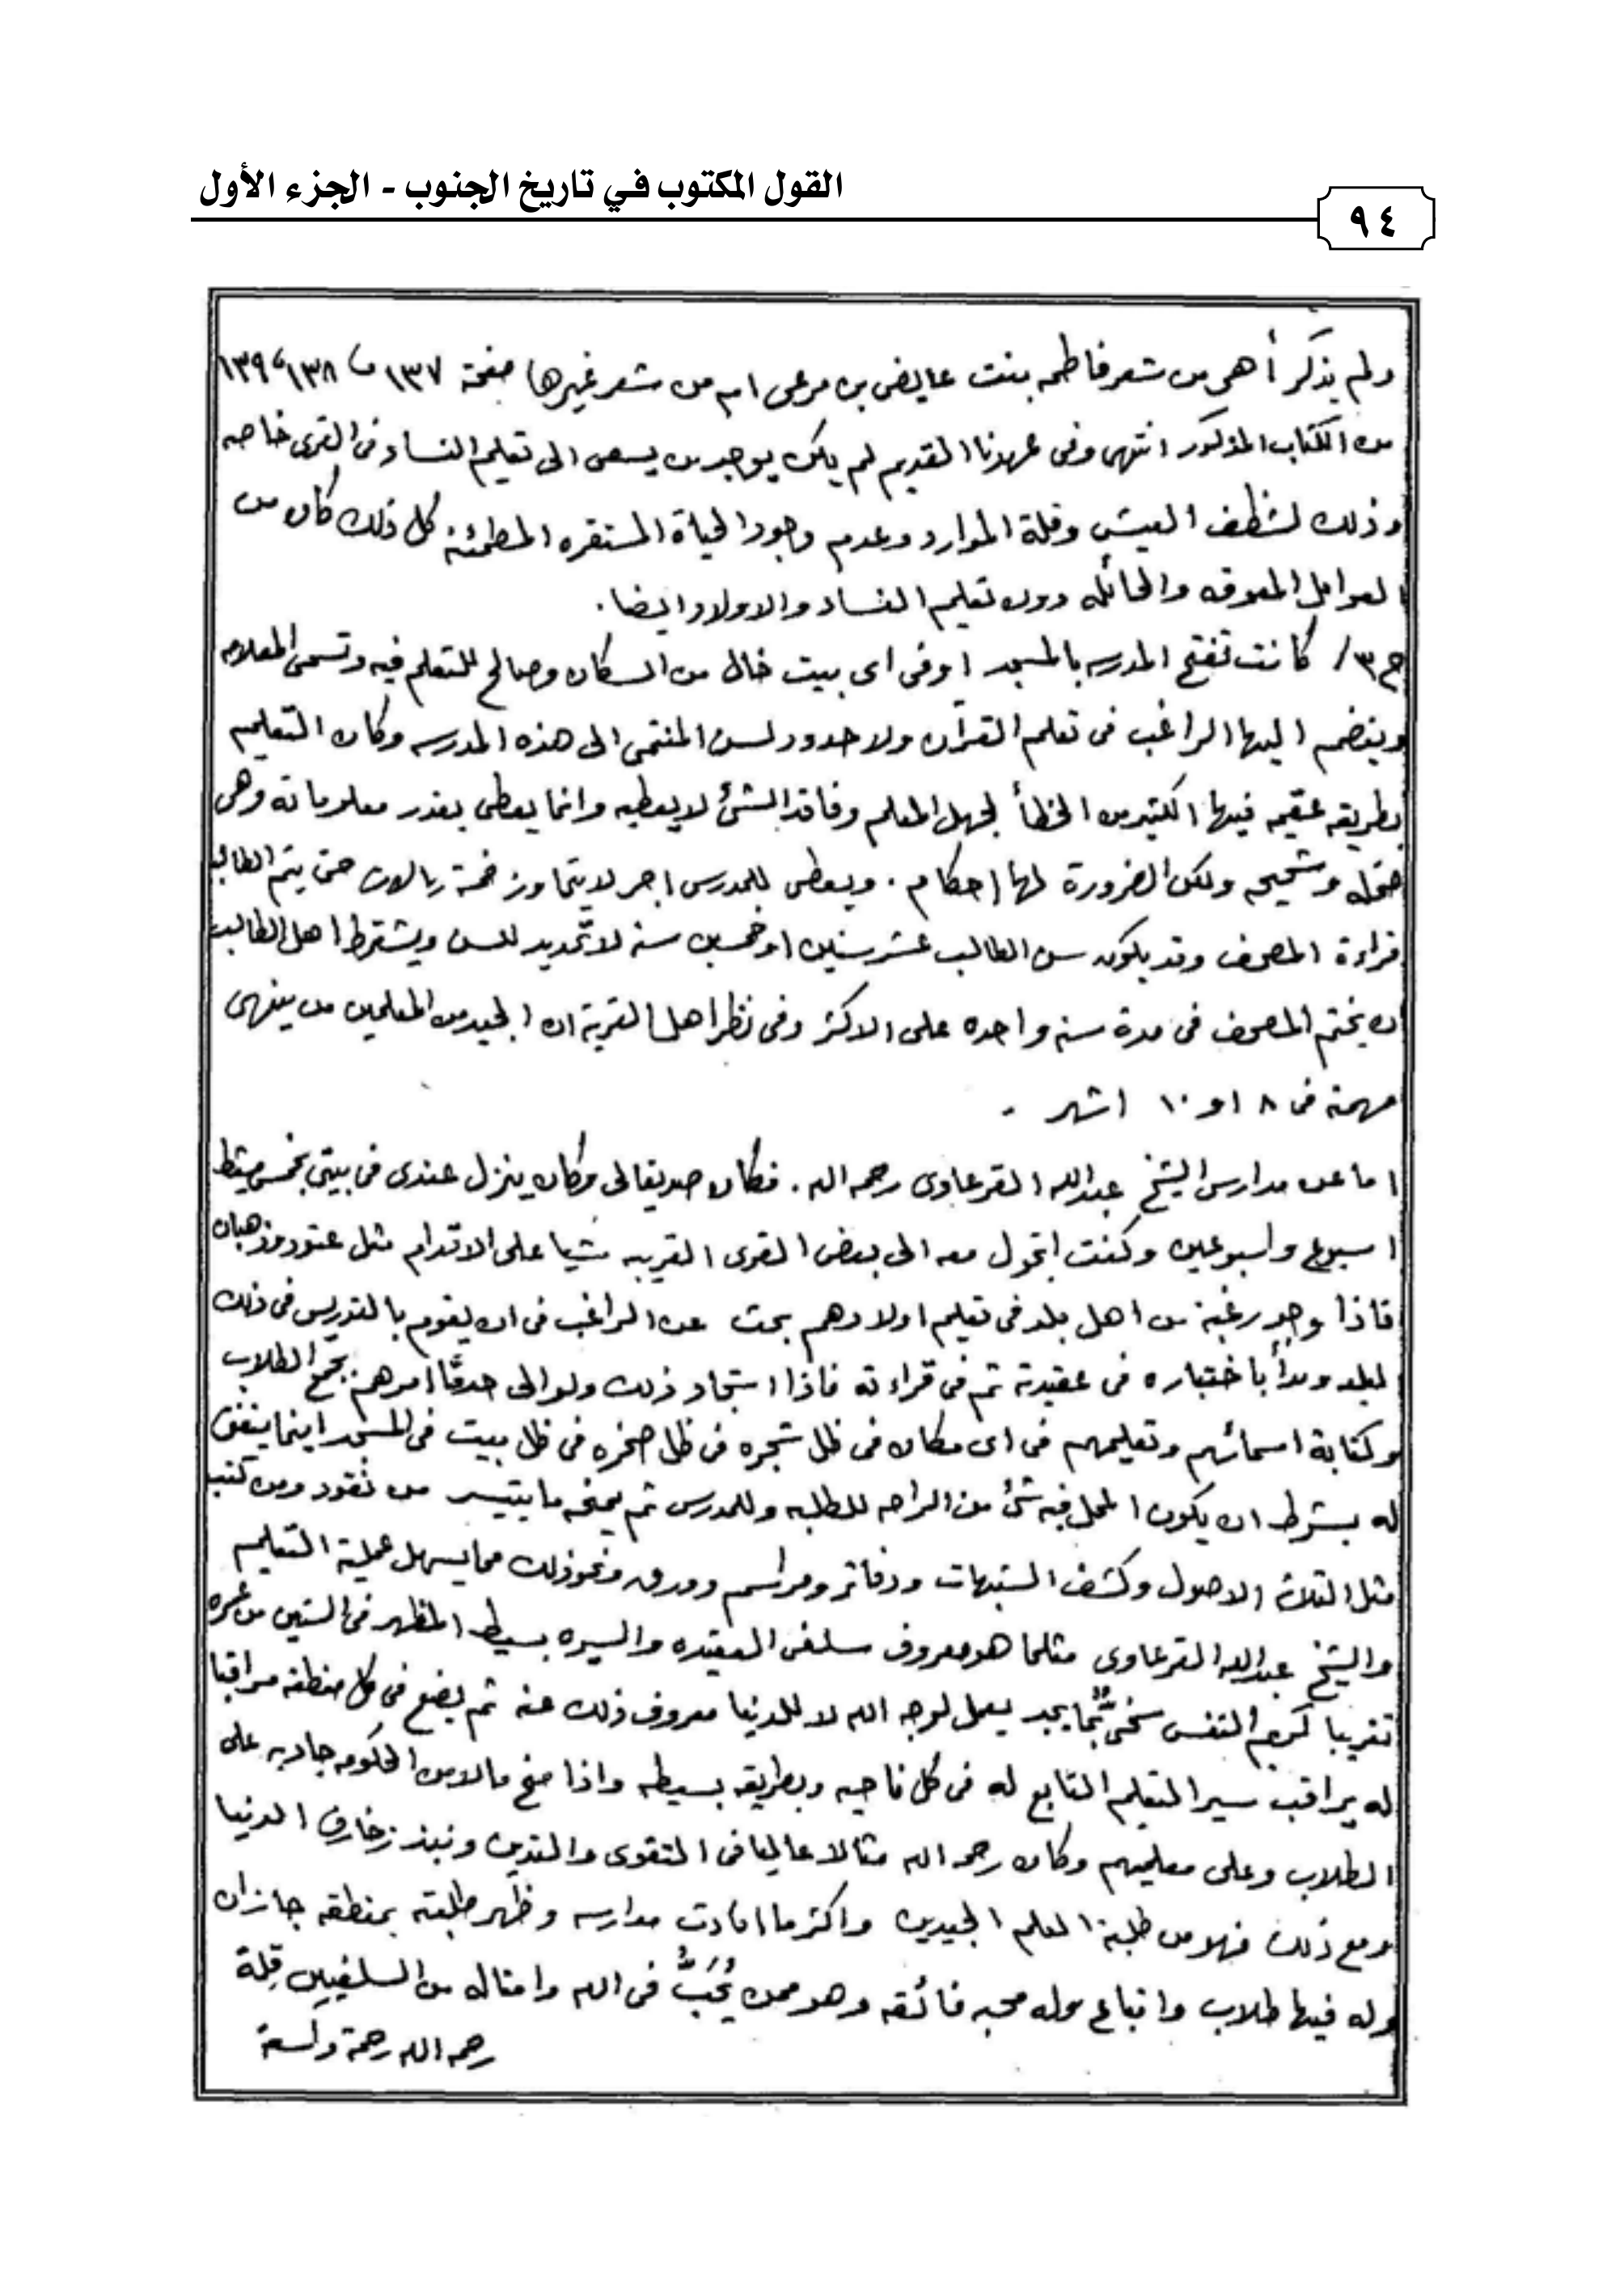 القول المكتوب في تاريخ الجنوب - الجزء الأول
٩٤
ولم يذكر أهي من شعر فاطمه بنت عايض بن مرعي ام من شعر غيرها صفحة ١٣٧ و ١٣٨، ١٣٩
من الكتاب المذكور انتهى وفي عهدنا القديم لم يكن يوجد من يسعى الى تعليم النساء في القرى خاصه
وذلك لشظف العيش وقلة الموارد وعدم وجود الحياة المستقره المطمئنه كل ذلك كان من
العوامل المعوقه والحائله دون تعليم النساء والاولاد ايضا.
ج٣/ كانت تفتح المدرسه بالمسجد او في اى بيت خال من السكان وصالح للتعلم فيه وتسمى المعلامه
وينضم اليها الراغب في تعلم القرآن ولا حدود لسن المنتمى الى هذه المدرسه وكان التعليم
بطريقه عقيمه فيها الكثير من الخطأ لجهل المعلم وفاقد الشئ لا يعطيه وانما يعطى بقدر معلوماته وهى
ضحله وشحيحه ولكن الضرورة لها احكام . ويعطى للمدرس اجر لا يتجاوز خمسة ريالات حتى يتم الطالب
قراءة المصحف وقد يكون سن الطالب عشر سنين او خمسين سنه لا تحديد للسن ويشترط اهل الطالب
ان يختم المصحف في مدة سنه واحده على الاكثر وفي نظر اهل القرية ان الجيد من المعلمين من ينهى
مهمته في ٨ او ١٠ اشهر .
اما عن مدارس الشيخ عبدالله القرعاوى رحمه الله . فكان صديقا لى وكان ينزل عندى في بيتى بخميس مشيط
اسبوع واسبوعين وكنت اتجول معه الى بعض القرى القريبه مشيا على الاقدام مثل عتود وذهبان
فاذا وجد رغبة من اهل بلد في تعليم اولادهم بحث عن الراغب في ان يقوم بالتدريس في ذلك
البلد وبدأ باختباره في عقيدته ثم في قراءته فاذا استجاد ذلك ولو الى حد ما امرهم بجمع الطلاب
وكتابة اسمائهم وتعليمهم في اى مكان في ظل شجره في ظل صخره في ظل بيت في المسجد اينما يتفق
له بشرط ان يكون المحل فيه شئ من الراحه للطلبه وللمدرس ثم يمنحه ما يتيسر من نقود ومن كتب
مثل الثلاثة الاصول وكشف الشبهات ودفاتر ومراسم وورق ونحو ذلك مما يسهل عملية التعليم
والشيخ عبدالله القرعاوى مثلما هو معروف سلفى العقيده والسيره بسيط المظهر في الستين من عمره
تقريبا كريم النفس سخيٌّ بما يجد يعمل لوجه الله لا للدنيا معروف ذلك عنه ثم يضع في كل منطقه مراقبا
له يراقب سير التعليم التابع له في كل ناحيه وبطريقه بسيطه واذا منح مالا من الحكومه جاد به على
الطلاب وعلى معلميهم وكان رحمه الله مثالا عاليا في التقوى والتدين ونبذ زخارف الدنيا
ومع ذلك فهو من طلبة العلم الجيدين واكثر ما افادت مدارسه وظهر طلبته بمنطقه جازان
وله فيها طلاب واتباع وله محبه فائقه وهو ممن يُحَبُّ في الله وامثاله من السلفيين قِلة
رحمه الله رحمة واسعة